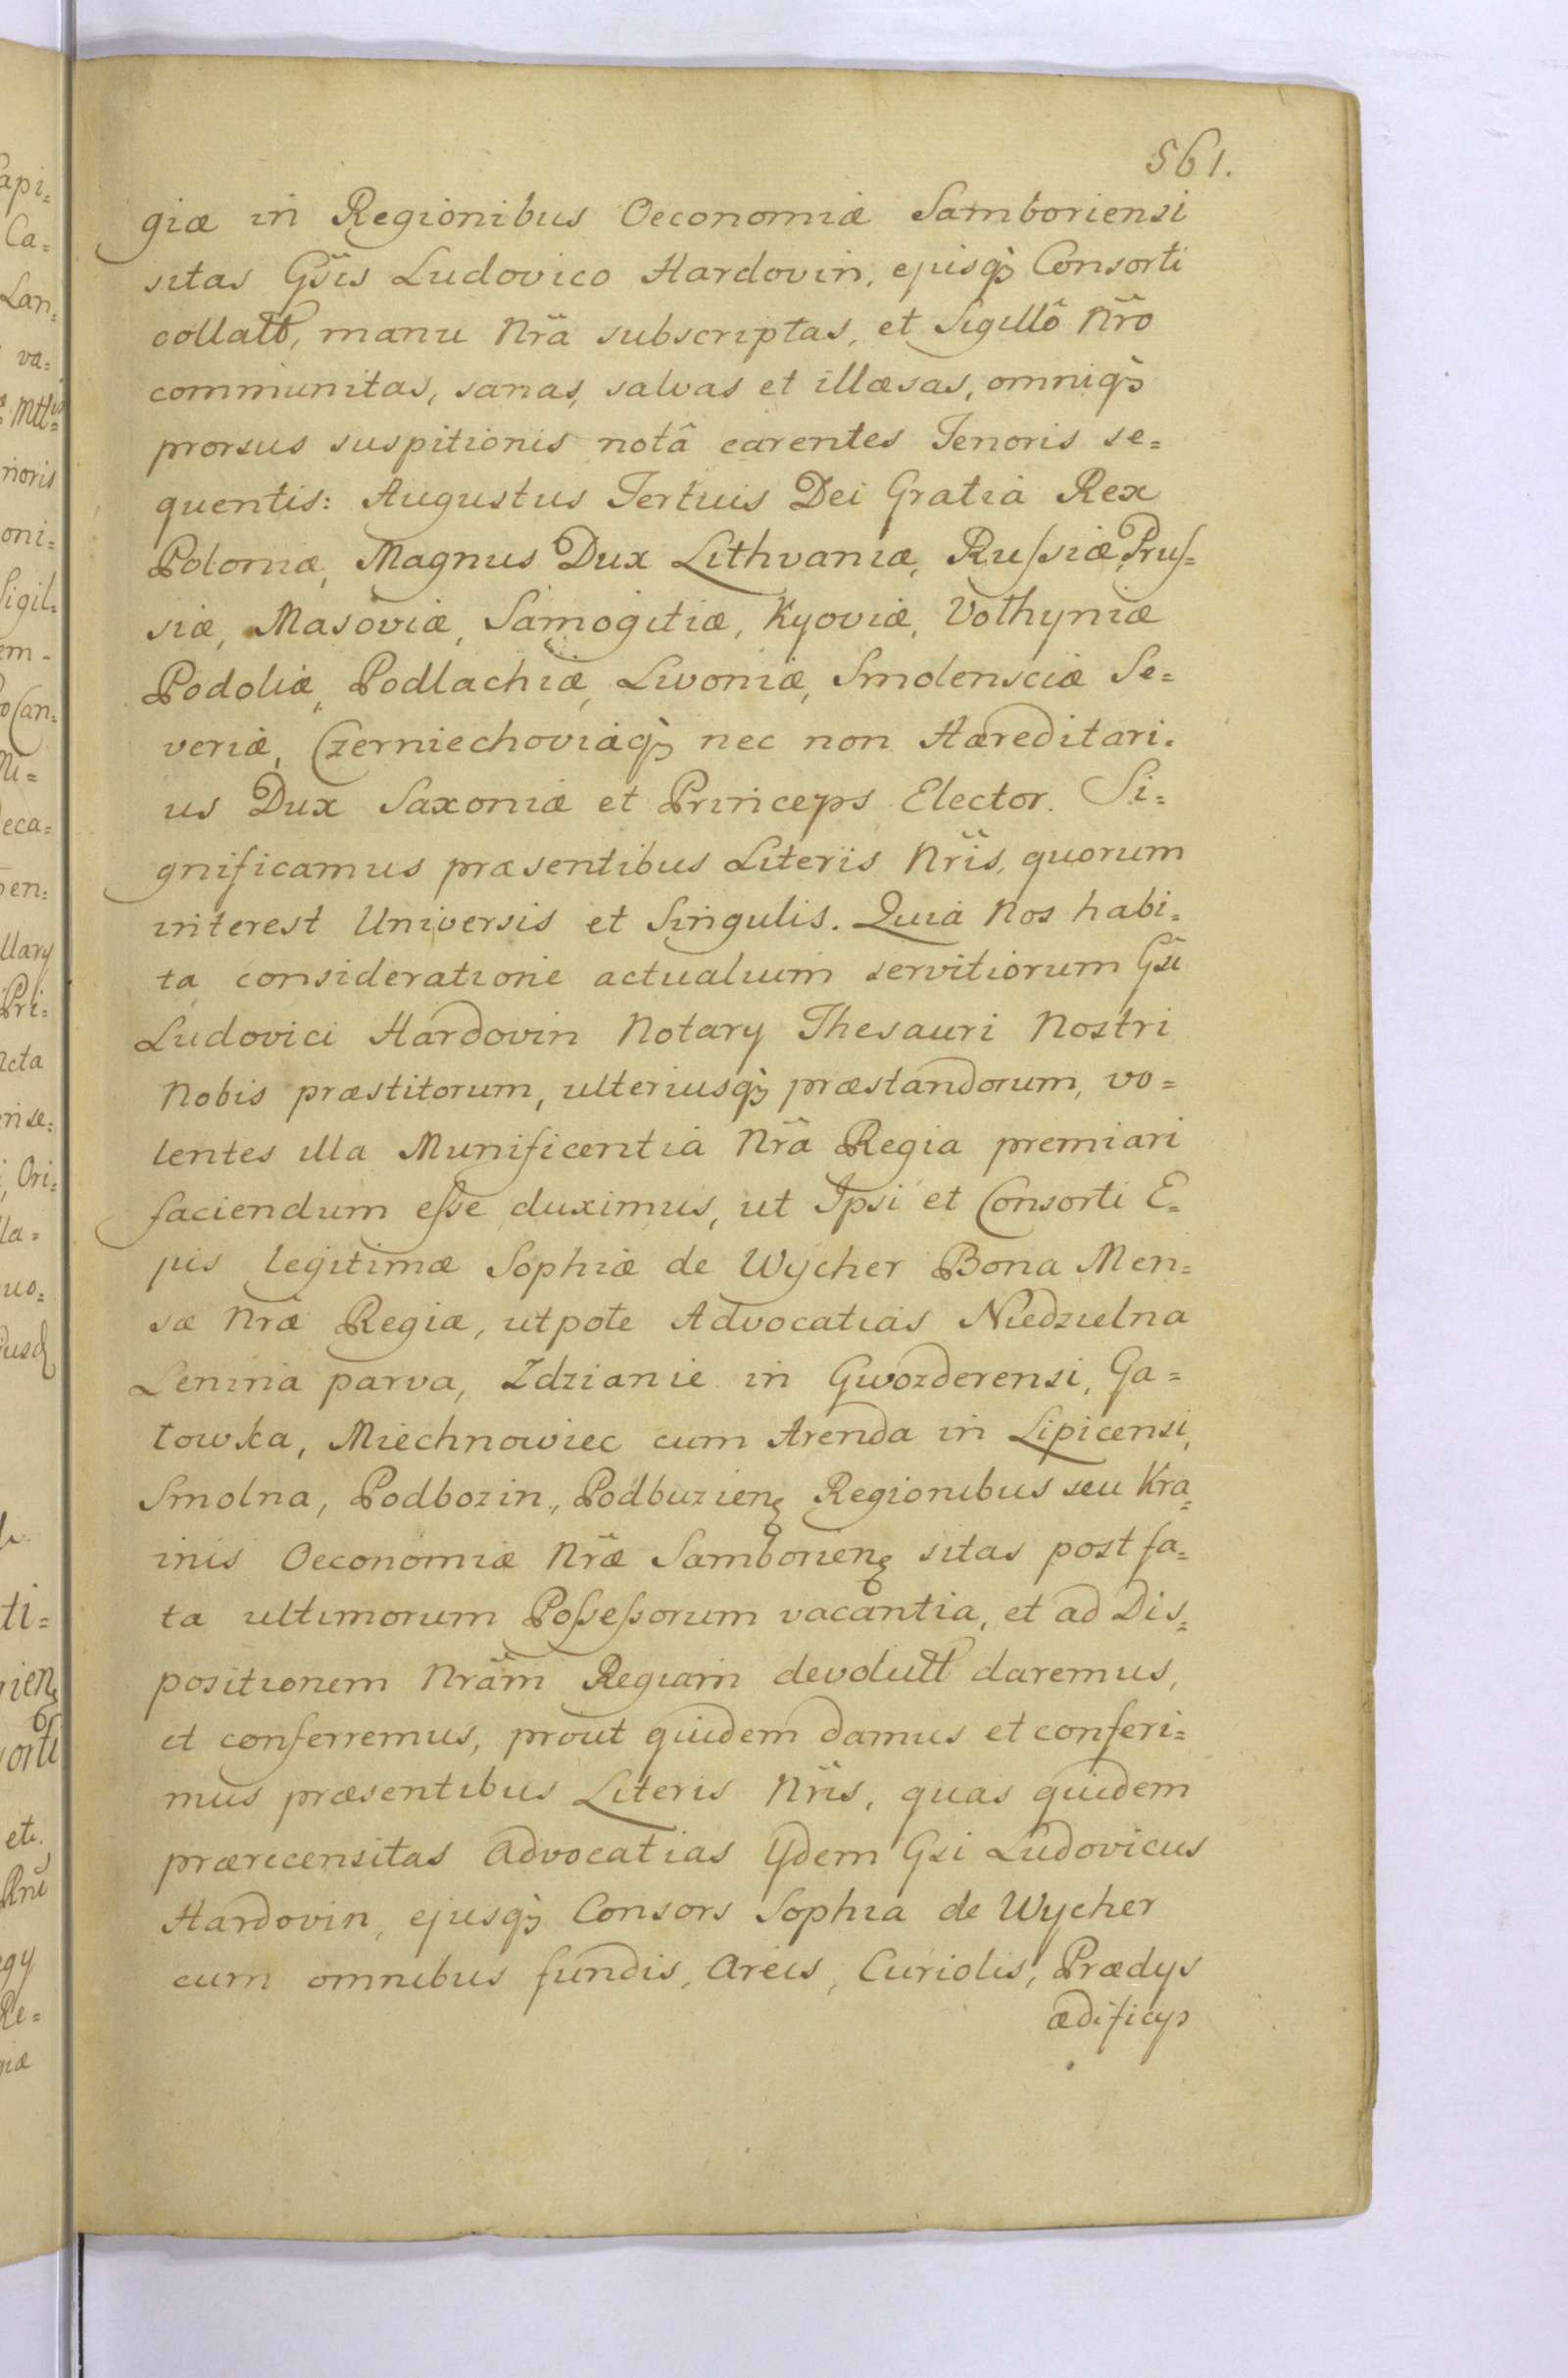 561.
giæ in Regionibus Oeconomiæ Samboriensi
sitas Gsis Ludovico Hardovin, ejusq; Consorti
collatt, manu Nrã subscriptas, et Sigillô Nrõ
communitas, sanas, salvas et illæsas, omniq;
prorsus suspitionis notâ carentes Tenoris se=
quentis: Augustus Tertuis Dei Gratia Rex
Poloniæ, Magnus Dux Lithvaniæ, Russiæ, Prus=
siæ, Masoviæ, Samogitiæ, Kyoviæ, Volhyniæ
Podoliæ, Podlachiæ, Livoniæ, Smolensciæ Se=
veriæ, Czerniechoviæq; nec non Hæreditari=
us Dux Saxoniæ et Princeps Elector. Si=
gnificamus præsentibus Literis Nris, quorum
interest Universis et Singulis. Quia Nos habi=
ta consideratione actualium servitiorum Gsi
Ludovici Hardovin Notary Thesauri Nostri
Nobis præstitorum, ulteriusq; præstandorum, vo=
lentes illa Munificentia Nrã Regia premiari
faciendum esse duximus, ut Ipsi et Consorti E=
jus legitimæ Sophiæ de Wycher Bona Men=
sæ Nræ Regiæ, utpote Advocatias Niedzielna
Lenina parva, Zdzianie in Gwozderensi, Ga=
towka, Miechnowiec cum Arenda in Lipicensi,
Smolna, Podbozin, Podbuzien Regionibus seu Kra=
inis Oeconomiæ Nræ Samborien sitas post fa=
ta ultimorum Possessorum vacantia, et ad Dis=
positionem Nram Regiam devolutt daremus,
et conferremus, prout quidem damus et conferi=
mus præsentibus Literis Nris, quas quidem
præricensitas Advocatias Ydem Gsi Ludovicus
Hardovin, ejusq; Consors Sophia de Wycher
cum omnibus fundis, Areis, Curiolis, Prædys
ædificys